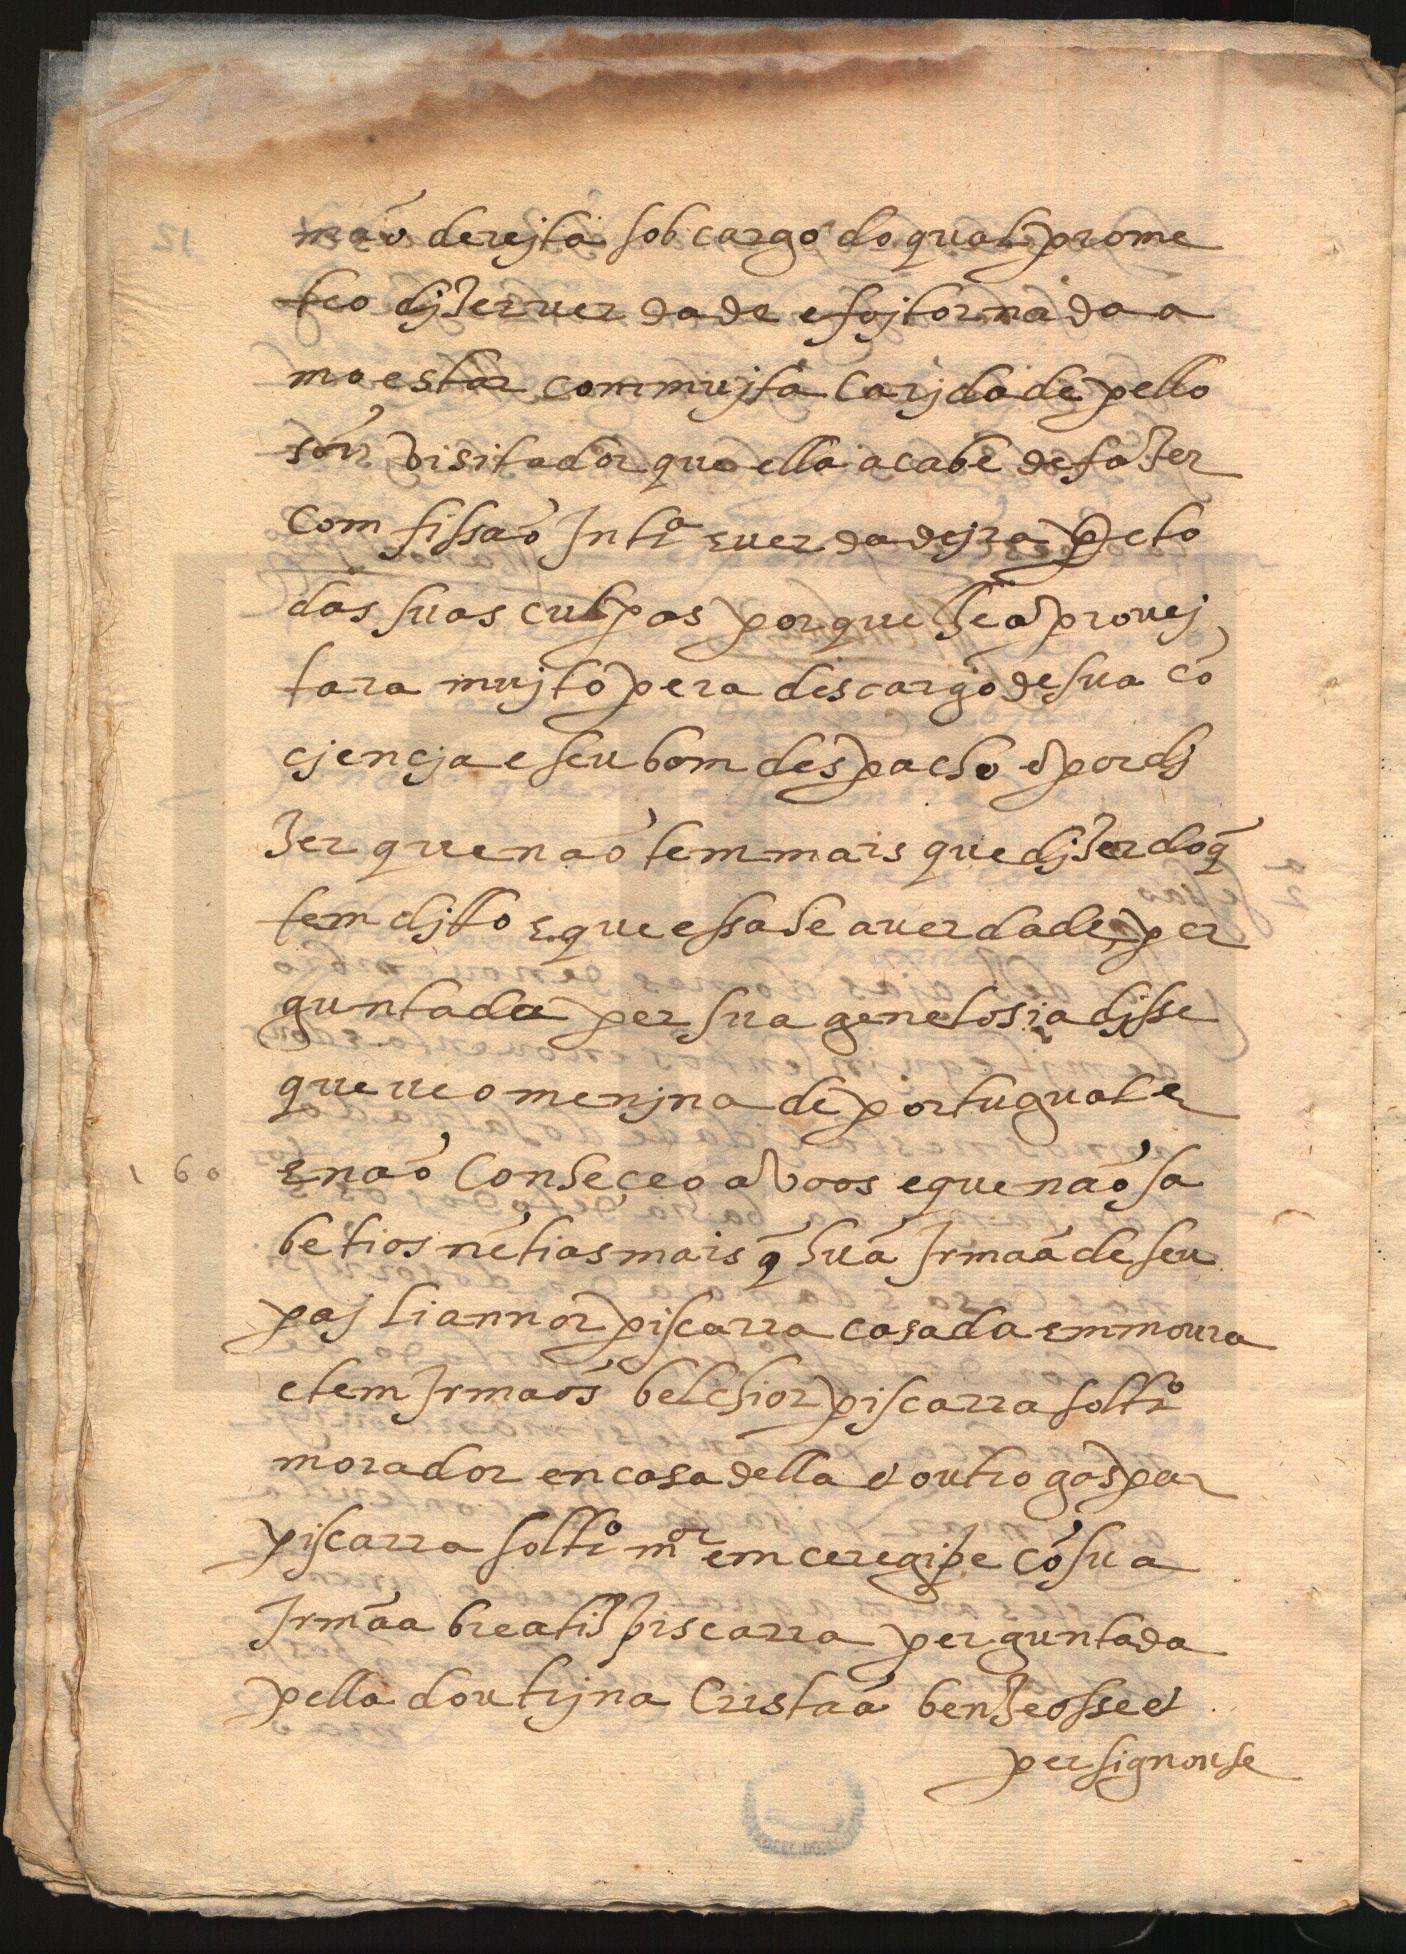 mão dereita sob cargo do qual prome
teo dizer uerdade e foj tornada a
moestar com mujta carjdade pello
sõr visitador que ella acabe de fazer
comfissaõ Intrª e uerdadejra de to
das suas culpas porque lhe aprouej
tara mujto pera descargo de sua cõ
cjencja e seu bom despacho e por dj
zer que naõ tem mais que djzer do q̃
tem djtto e que essa he a uerdade, per
guntada per sua genelosia djsse
que ueo menjna de portugual
e naõ conheçeo avoos e que naõ sa
be tios nẽ tias mais q̃ hũa Irmaã de seu
paj liannor piscarra casada em moura
e tem Irmaõs belchior piscarra soltrº
morador en casa della e outro gaspar
piscarra soltrº mor em ceregipe cõ sua
Irmãa breatiz piscarra perguntada
pella doutrjna Cristaã benzeosse e
persignouse
160